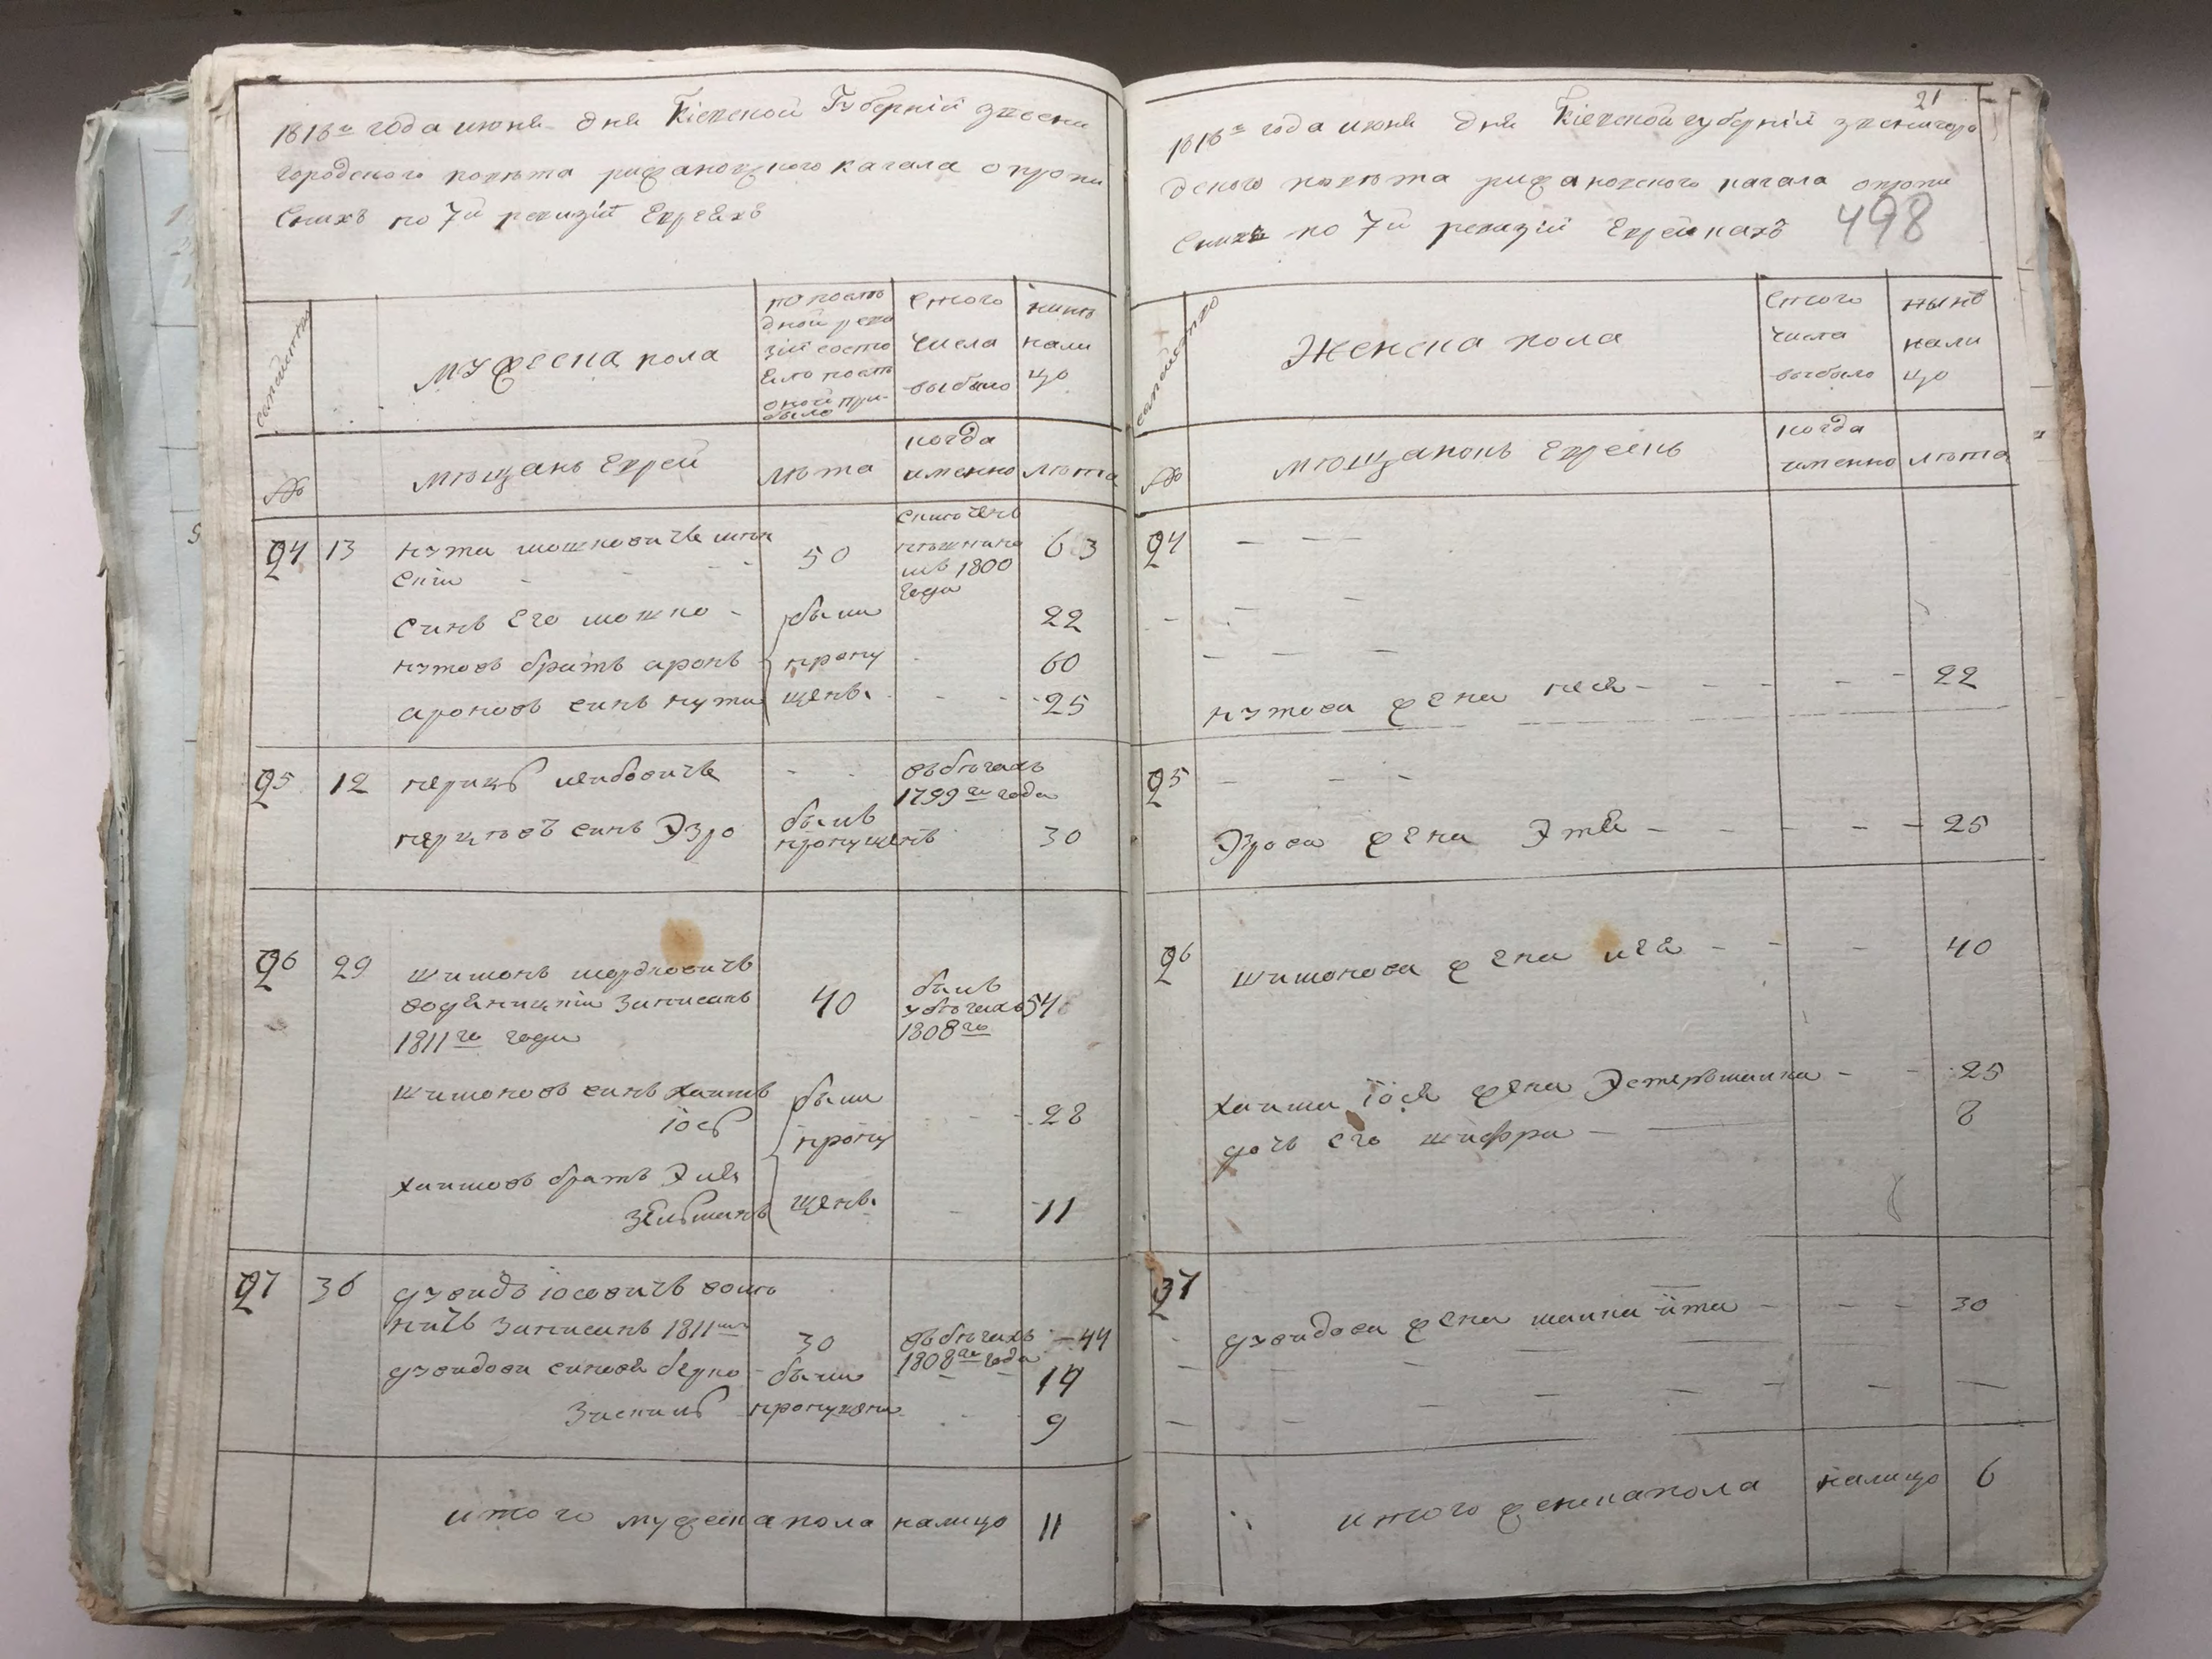 1816го года июня дня Кіевской Губерніи звени
городского повета рижановского кагала о пропи
сныхъ по 7й ревизіи Евреяхъ
семейства
мужеска пола
по послѣ
дной реви
зіи состо
яло
былo
с того
числа
выбыло
нинѣ
нали
цо
№
мѣщанъ Еврей
лѣта
когда
именно
лѣта
24 13 нута мошковичъ
50
1800
года
63
синъ его мошко -
были
22
нутовъ братъ аронъ
пропу
60
ароновъ синъ нута
щенъ
25
25 12 перицъ лейбовичъ - -
въ бѣгахъ
1799го года
перицовъ синъ Эзро
былъ
пропущенъ
30
26 29 шимонъ мордковичъ
записанъ
1811го года
40
былъ
у бѣгахъ
1808го
54
шимоновъ синъ хаимъ
іось
были
28
пропу
хаимовъ братъ Эля
зельманъ
щенъ
11
27 36 дувидъ іосьовичъ
записанъ 1811го
30
въ бѣгахъ
1808го года
44
дувидови синовя берко
были
19
зиселъ
пропущени
9
итого мужеска пола налицо 11
21
1816го года июня дня Кіевской губерніи звенигоро
дского повета рижановского кагала о пропи
снихъ по 7й ревизіи Еврейкахъ
498
семейство
Женска пола
с того
числа
выбыло
нынѣ
нали
цо
№
мѣщанокъ Евреекъ
когда
именно
лѣта
24
нутова жена песя - 22
25
Эзрова жена Этя - 25
26 шимонова жена лея - 40
хаима іося жена Эстеръмалка - 25
дочь его шифра - 8
27
дувидова жена малка ита - 30
итого женска пола налицо 6